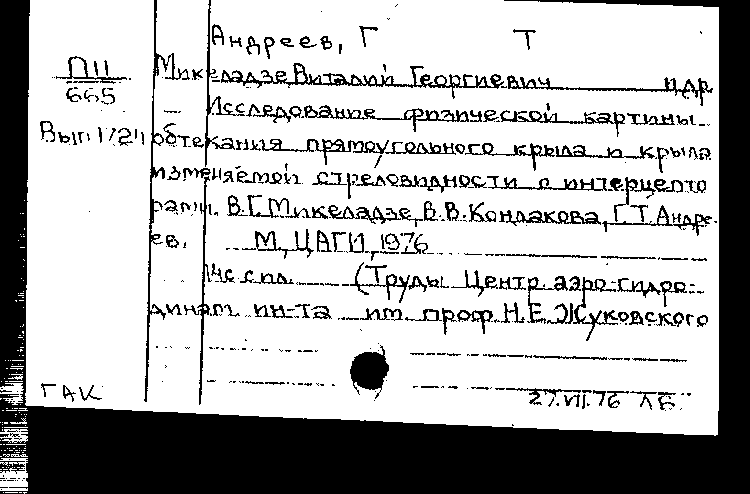 Андреев, Г Т
ПII Микеладзе, Виталий Георгиевич и др.
665
— Исследование физической картины
Вып. 1724 обтекания прямоугольного крыла и крыла
изменяемой стреловидности с интерцепто
рами. В.Г. Микеладзе, В.В. Кондакова, Г.Т. Андре-
ев. М., ЦАГИ, 1976
14с с пл. (Труды Центр. аэро-гидро-
динам. ин-та им. проф. Н.Е. Жуковского
ГАК 27.VII.76 ЛБ.